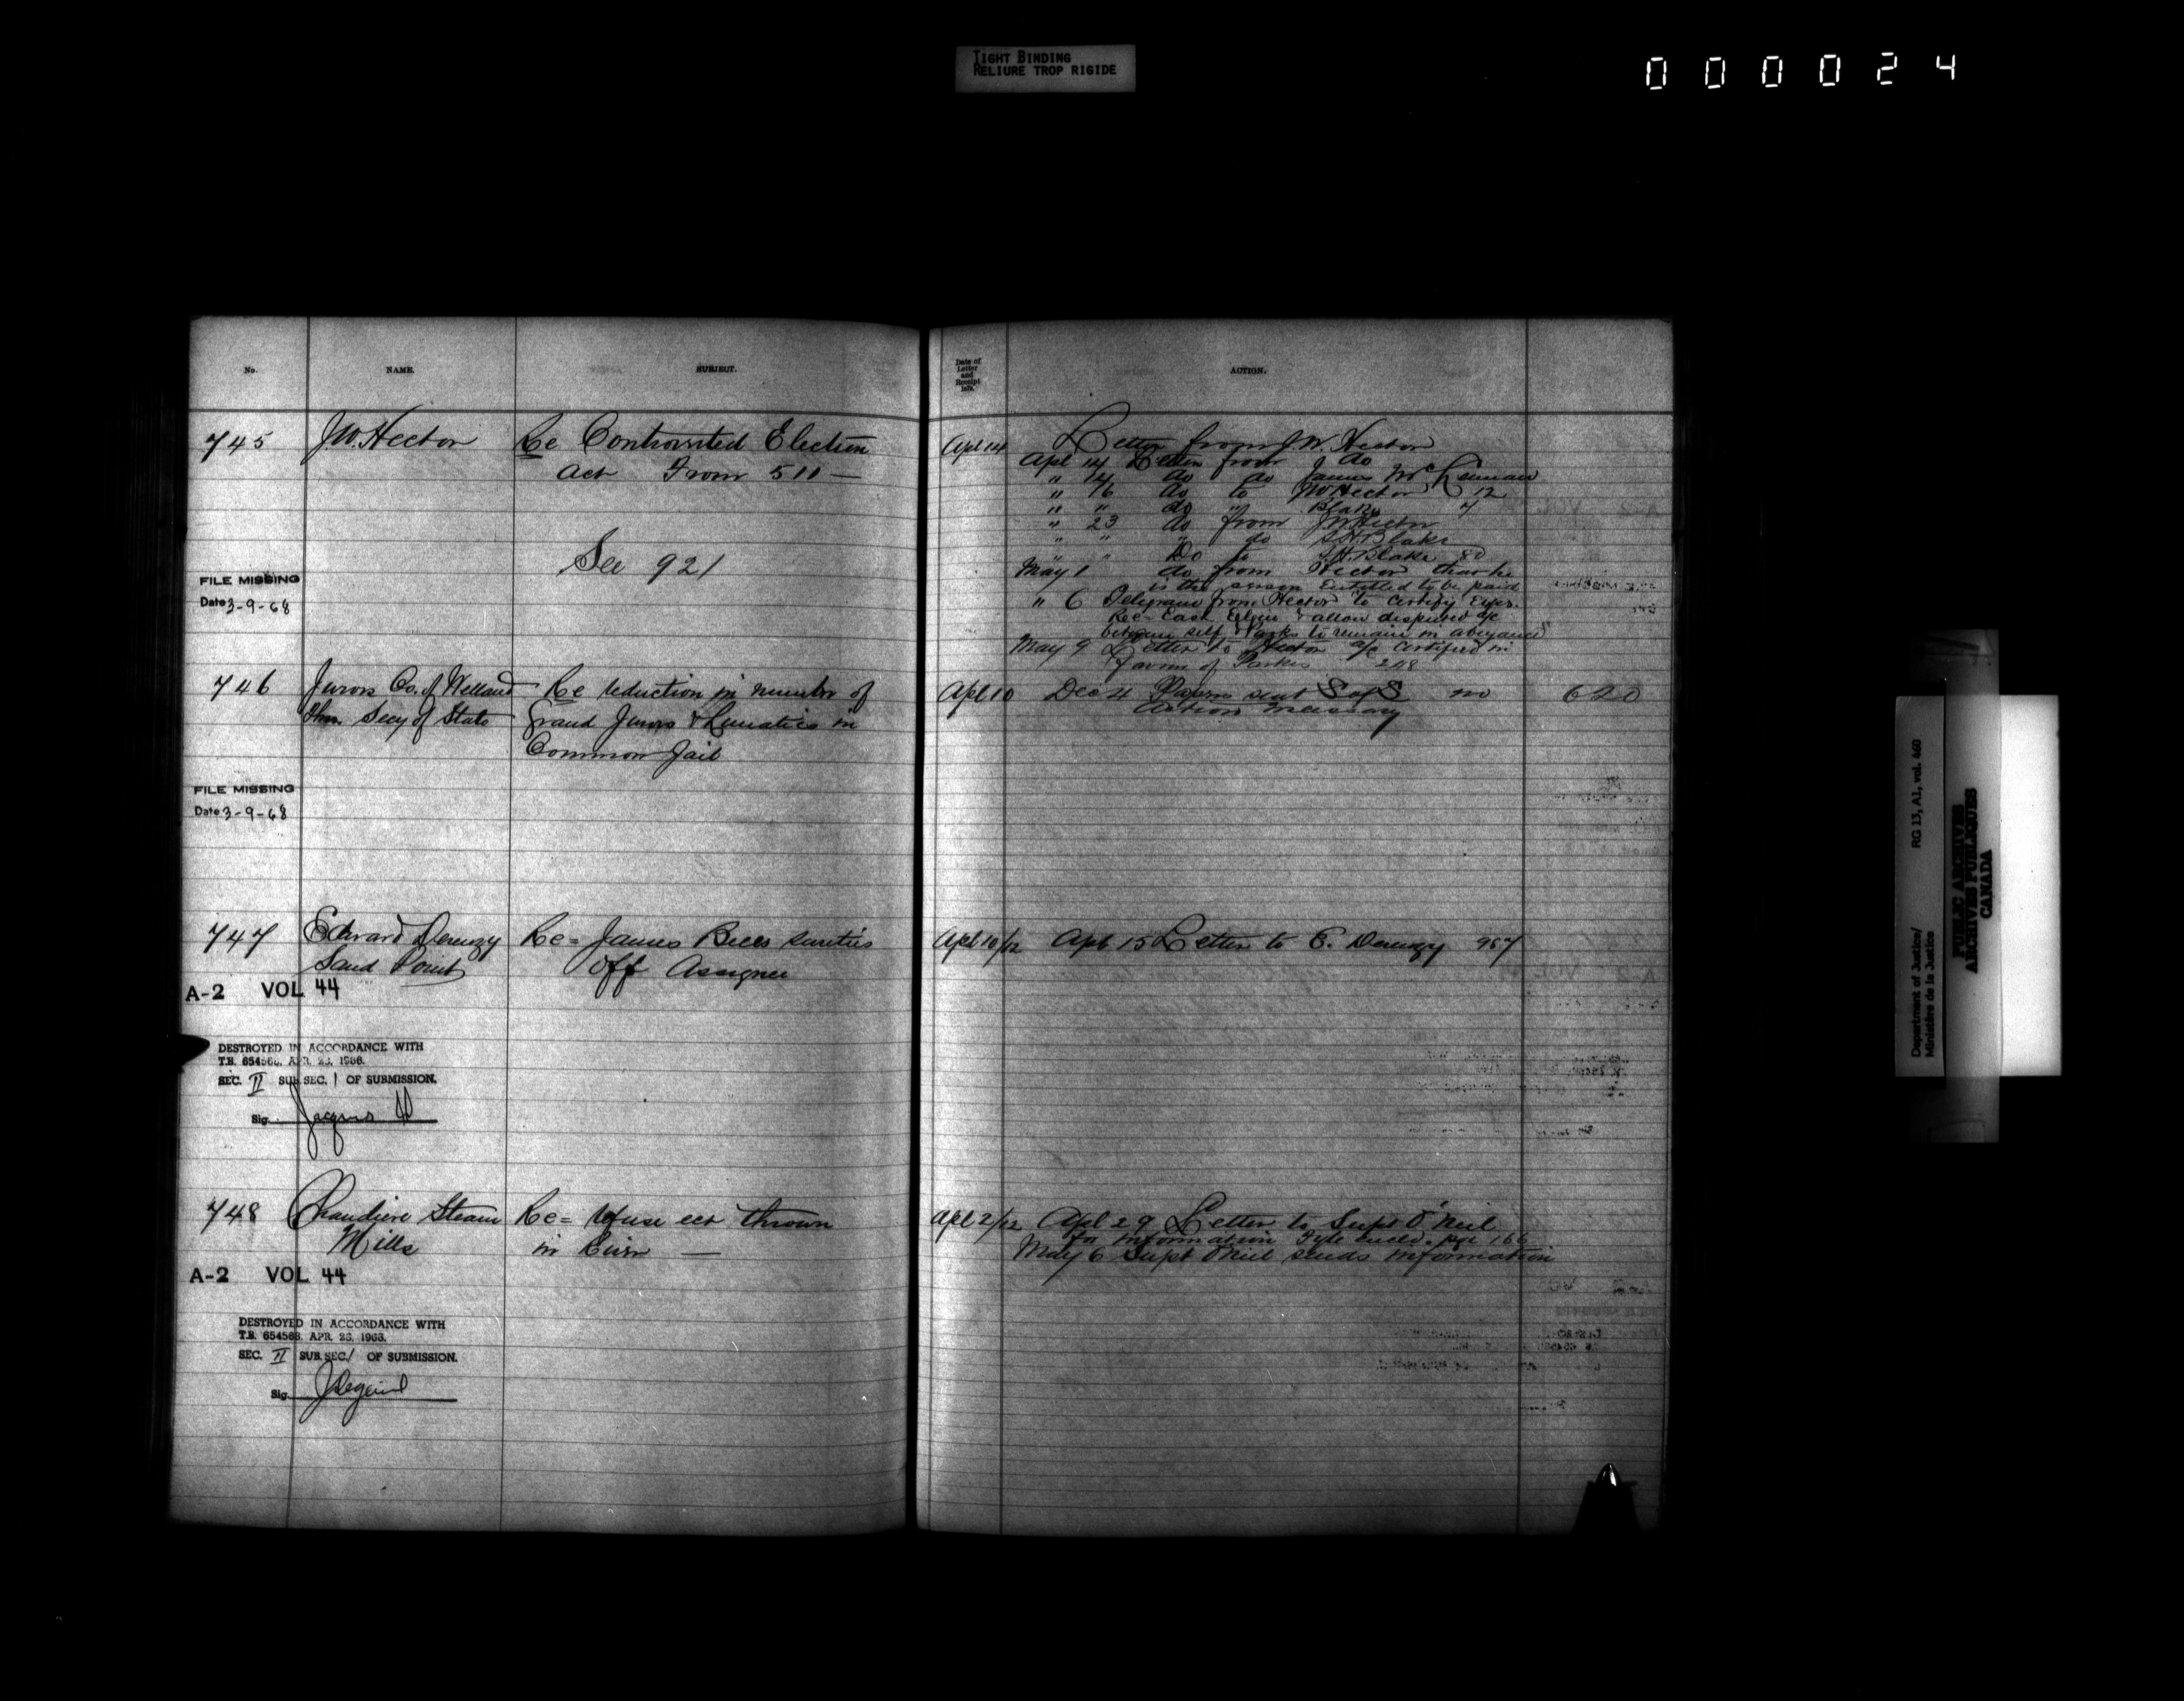 TIGHT BINDING
RELIURE TROP RIGIDE
000024
No.
NAME.
SUBJECT.
745
J.W. Hector
Re Controverted Election
Act From 511 —
See 921
FILE MISSING
Date 3-9-68
746
Jurors Co. of Welland
Thro. Secy of State
Re reduction in number of
Grand Jurors & Lunatics in
Common Jail
FILE MISSING
Date 3-9-68
747
Edward Derenzy
Sand Point
Re= James Bells sureties
Off Assignee
A-2 VOL 44
DESTROYED IN ACCORDANCE WITH
T.B. 654568, APR. 23, 1966.
SEC. II SUB. SEC. 1 OF SUBMISSION.
Sig.
748
Chaudiere Steam
Mills
Re= refuse ect thrown
in River —
A-2 VOL 44
DESTROYED IN ACCORDANCE WITH
T.B. 654568, APR. 23, 1966.
SEC. II SUB. SEC. / OF SUBMISSION.
Sig.
Date of
Letter
and
Receipt
ACTION.
Apl 14
Letter from J.W. Hector
Apl 14 Letter from do
" 14 do do James McLennan
" 16 do to JW Hector 12
" " do " Blake 7
" 23 do from JW Hector
" " " do S.H. Blake
" " Do to S.H. Blake 80
May 1 do from Hector that he
is the person Entitled to be paid
" 6 Telegram from Hector to Certify Exps.
Re= East Elgin & allow disputed a/c
between self & Parks to remain in abeyance"
May 9 Letter to Hector a/c Certified in
favour of Parkes 248
Apl 10
Dec 4 Papers sent S of S no
action necessary
620
Apl 10/12
Apl 15 Letter to E. Derenzy 957
Apl 2/12
Apl 29 Letter to Supt O'Neil
for information Fyle encld. pge 166
May 6 Supt O'Neil sends information
RG 13, A1, vol. 460
Department of Justice/
Ministère de la Justice
PUBLIC ARCHIVES
ARCHIVES PUBLIQUES
CANADA